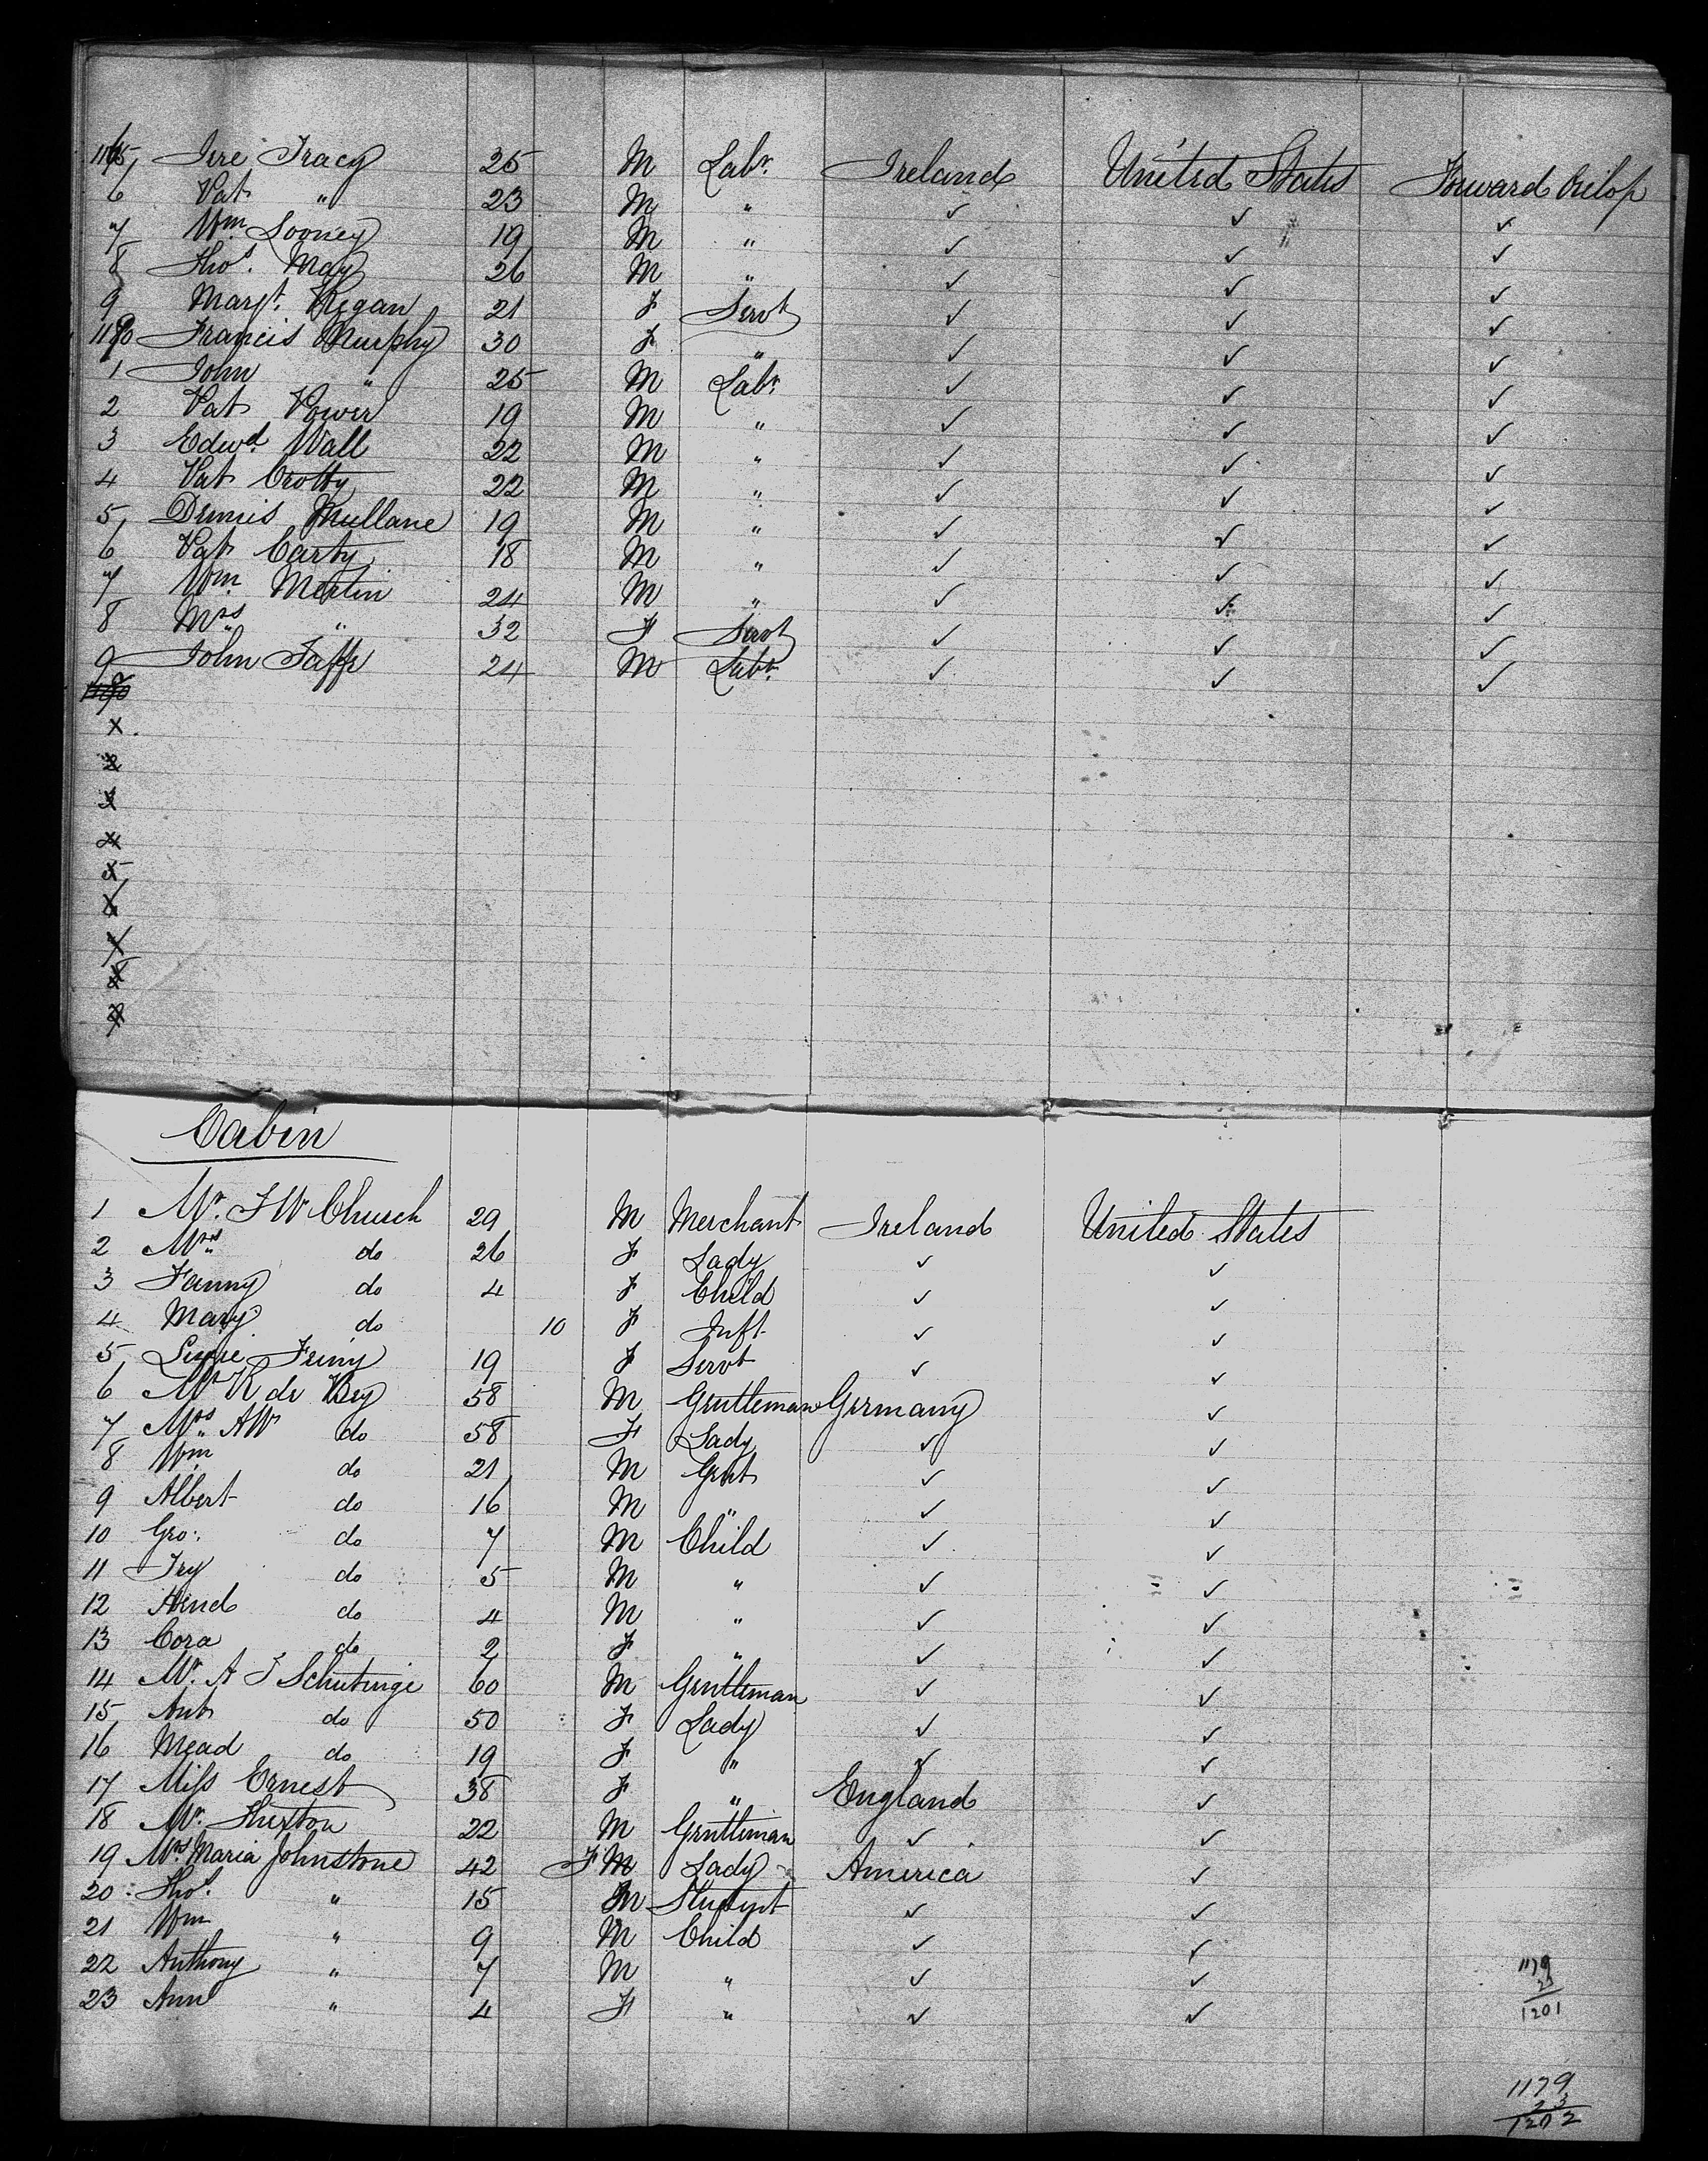 1165 Jere Tracy 25 M Labr. Ireland United States Forward
6 Pat " 23 M " ✓ ✓ ✓
7 Wm. Looney 19 M " ✓ ✓ ✓
8 Thos. May 26 M " ✓ ✓ ✓
9 Margt. Regan 21 F Servt ✓ ✓ ✓
1170 Francis Murphy 30 F " ✓ ✓ ✓
1 John " 25 M Labr. ✓ ✓ ✓
2 Pat Power 19 M " ✓ ✓ ✓
3 Edwd. Wall 22 M " ✓ ✓ ✓
4 Pat Crotty 22 M " ✓ ✓ ✓
5 Dennis Mullane 19 M " ✓ ✓ ✓
6 Pat Carty 18 M " ✓ ✓ ✓
7 Wm. Martin 24 M " ✓ ✓ ✓
8 Mrs " 32 F Servt ✓ ✓ ✓
9 John Taffe 24 M Labr. ✓ ✓ ✓
2
3
4
5
6
7
8
9
Cabin
1 Mr. F W Church 29 M Merchant Ireland United States
2 Mrs do 26 F Lady ✓ ✓
3 Fanny do 4 F Child ✓ ✓
4 Mary do 10 F Inft ✓ ✓
5 19 F Servt ✓ ✓
6 Mr K de Bey 58 M Gentleman Germany ✓
7 Mrs AW do 58 F Lady ✓ ✓
8 Wm do 21 M Gent ✓ ✓
9 Albert do 16 M " ✓ ✓
10 Geo. do 7 M Child ✓ ✓
11 do 5 M " ✓ ✓
12 do 4 M " ✓ ✓
13 Cora do 2 F " ✓ ✓
14 Mr. A 60 M Gentleman ✓ ✓
15 do 50 F Lady ✓ ✓
16 Mead do 19 F " ✓ ✓
17 Miss Ernest 38 F " England ✓
18 Mr. 22 M Gentleman ✓ ✓
19 Mrs Maria Johnstone 42 F M Lady America ✓
20 Thos. " 15 M Student ✓ ✓
21 Wm " 9 M Child ✓ ✓
22 Anthony " 7 M " ✓ ✓
23 Ann " 4 F " ✓ ✓
1179
23
1201
1179
23
1202